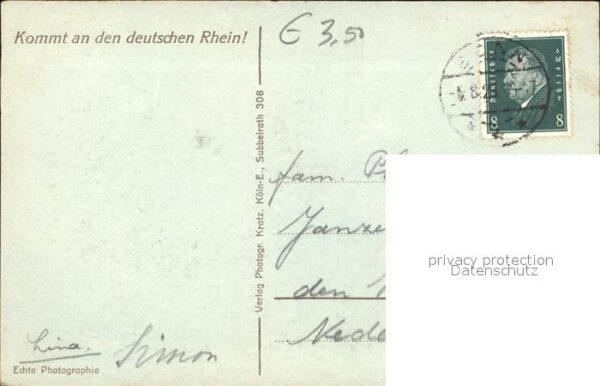 Kommt an den deutschen Rhein!
€ 3,50
8 8
Verlag Photogr. Kratz, Köln-E., Subbelrath 308
fam.
Janze
den
Nede
privacy protection
Datenschutz
Lina.
Simon
Echte Photographie